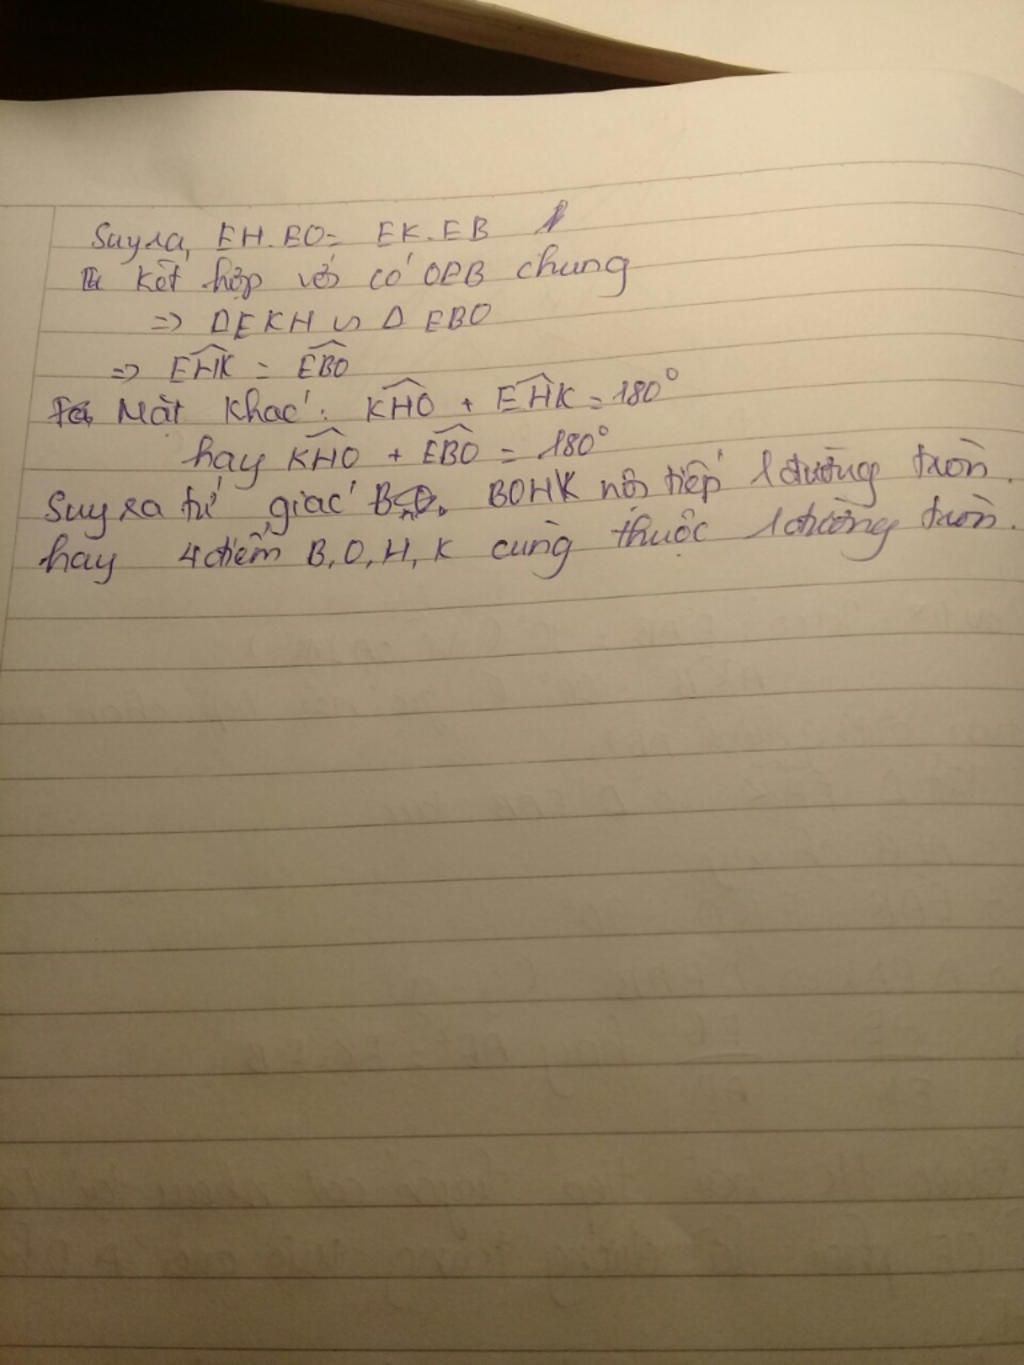 Suy ra, EH.EO = EK.EB
Kết hợp với có OEB chung
=> ΔEKH ∽ Δ EBO
=> \widehat{EHK} = \widehat{EBO}
Mặt khác : \widehat{KHO} + \widehat{EHK} = 180°
hay \widehat{KHO} + \widehat{EBO} = 180°
Suy ra tứ giác BOHK nội tiếp 1 đường tròn.
hay 4 điểm B, O, H, K cùng thuộc 1 đường tròn.